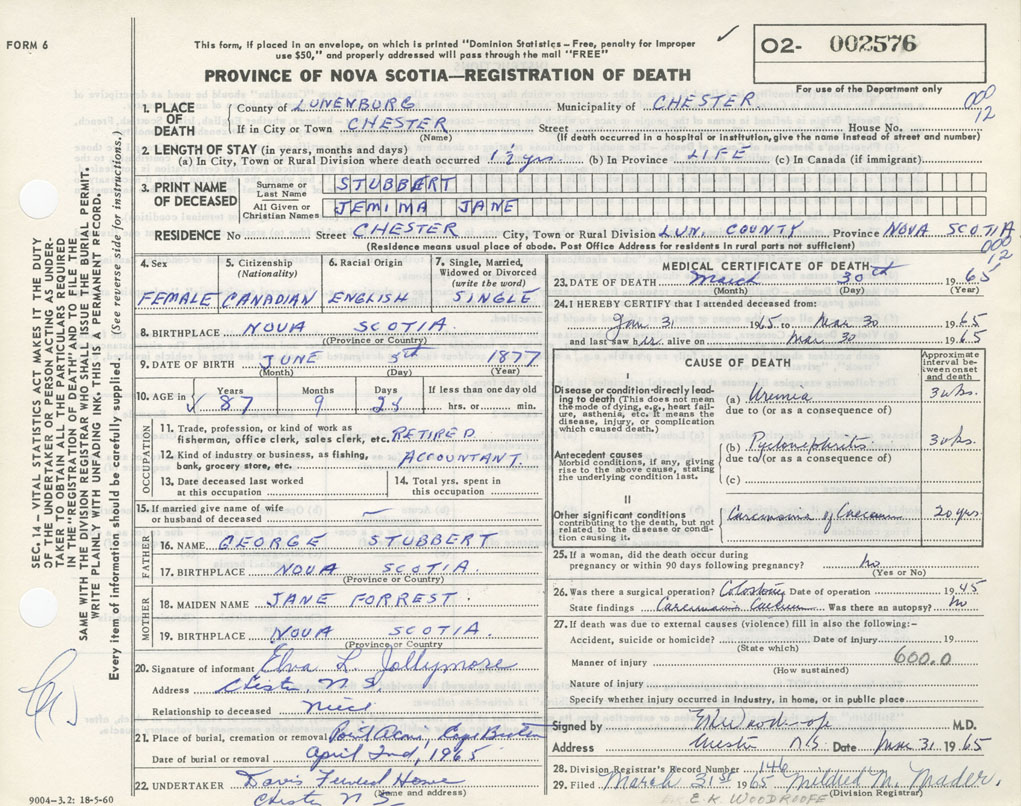 FORM 6
This form, if placed in an envelope, on which is printed "Dominion Statistics – Free, penalty for improper
use $50," and properly addressed will pass through the mail "FREE"
O2- 002576
For use of the Department only
PROVINCE OF NOVA SCOTIA—REGISTRATION OF DEATH
000
12
1. PLACE OF DEATH { County of LUNENBURG Municipality of CHESTER
If in City or Town CHESTER Street House No.
(Name) (If death occurred in a hospital or institution, give the name instead of street and number)
2. LENGTH OF STAY (in years, months and days)
(a) In City, Town or Rural Division where death occurred 1½ yrs (b) In Province LIFE (c) In Canada (if immigrant)
3. PRINT NAME OF DECEASED
Surname or Last Name STUBBERT
All Given or Christian Names JEMIMA JANE
RESIDENCE No Street CHESTER City, Town or Rural Division LUN. COUNTY Province NOVA SCOTIA
(Residence means usual place of abode. Post Office Address for residents in rural parts not sufficient)
000
12
4. Sex FEMALE
5. Citizenship (Nationality) CANADIAN
6. Racial Origin ENGLISH
7. Single, Married, Widowed or Divorced (write the word) SINGLE
8. BIRTHPLACE NOVA SCOTIA
(Province or Country)
9. DATE OF BIRTH JUNE 5th 1877
(Month) (Day) (Year)
10. AGE in Years 87 Months 9 Days 25 If less than one day old
hrs. or min.
OCCUPATION
11. Trade, profession, or kind of work as
fisherman, office clerk, sales clerk, etc. RETIRED
12. Kind of industry or business, as fishing,
bank, grocery store, etc. ACCOUNTANT.
13. Date deceased last worked
at this occupation
14. Total yrs. spent in
this occupation
15. If married give name of wife
or husband of deceased —
FATHER
16. NAME GEORGE STUBBERT
17. BIRTHPLACE NOVA SCOTIA.
(Province or Country)
MOTHER
18. MAIDEN NAME JANE FORREST.
19. BIRTHPLACE NOVA SCOTIA.
(Province or Country)
20. Signature of informant Elva L. Jollymore
Address Chester N S
Relationship to deceased niece
21. Place of burial, cremation or removal Point Aconi, Cape Breton
Date of burial or removal April 2nd, 1965
22. UNDERTAKER Davis Funeral Home
(Name and address)
Chester N S
MEDICAL CERTIFICATE OF DEATH
23. DATE OF DEATH March 30th 1965
(Month) (Day) (Year)
24. I HEREBY CERTIFY that I attended deceased from:
Jan 31 1965 to Mar 30 1965
and last saw her alive on Mar 30 1965
CAUSE OF DEATH
Approximate interval between onset and death
I
Disease or condition directly leading to death (This does not mean the mode of dying, e.g., heart failure, asthenia, etc. It means the disease, injury, or complication which caused death.)
(a) Uremia 3 wks.
due to (or as a consequence of)
(b) Pyelonephritis. 3 wks
due to (or as a consequence of)
Antecedent causes
Morbid conditions, if any, giving rise to the above cause, stating the underlying condition last.
(c)
II
Other significant conditions
contributing to the death, but not related to the disease or condition causing it.
Carcinoma of Caecum 20 yrs.
25. If a woman, did the death occur during
pregnancy or within 90 days following pregnancy? no
(Yes or No)
26. Was there a surgical operation? Colostomy Date of operation 1945
State findings Carcinoma Caecum Was there an autopsy? no
27. If death was due to external causes (violence) fill in also the following:-
Accident, suicide or homicide? Date of injury 19
(State which)
Manner of injury 600.0
(How sustained)
Nature of injury
Specify whether injury occurred in industry, in home, or in public place
Signed by EK Woodroofe M.D.
Address Chester N.S. Date Mar 31 1965
28. Division Registrar's Record Number 146
29. Filed March 31st 1965 Mildred M. Mader.
(Division Registrar)
E. K. WOODROOFE
SEC. 14 – VITAL STATISTICS ACT MAKES IT THE DUTY
OF THE UNDERTAKER OR PERSON ACTING AS UNDER-
TAKER TO OBTAIN ALL THE PARTICULARS REQUIRED
IN THE "REGISTRATION OF DEATH" AND TO FILE THE
SAME WITH THE DIVISION REGISTRAR WHO SHALL ISSUE THE BURIAL PERMIT.
WRITE PLAINLY WITH UNFADING INK. THIS IS A PERMANENT RECORD.
Every item of information should be carefully supplied. (See reverse side for instructions.)
9004-3.2: 18-5-60